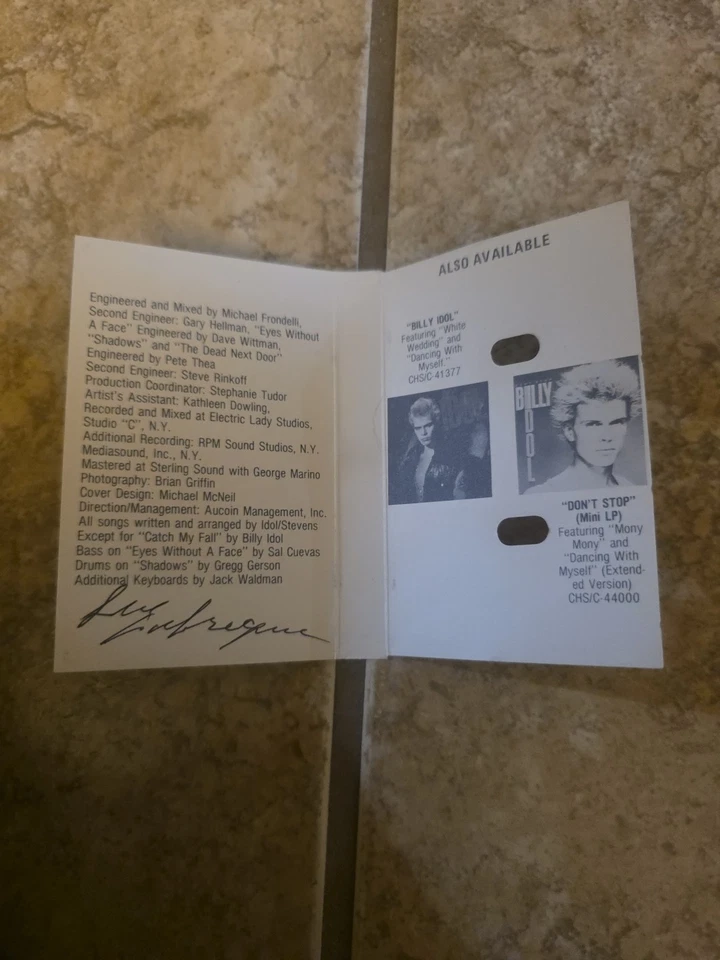 Engineered and Mixed by Michael Frondelli,
Second Engineer: Gary Hellman, "Eyes Without
A Face" Engineered by Dave Wittman,
"Shadows" and "The Dead Next Door"
Engineered by Pete Thea
Second Engineer: Steve Rinkoff
Production Coordinator: Stephanie Tudor
Artist's Assistant: Kathleen Dowling,
Recorded and Mixed at Electric Lady Studios,
Studio "C", N.Y.
Additional Recording: RPM Sound Studios, N.Y.
Mediasound, Inc., N.Y.
Mastered at Sterling Sound with George Marino
Photography: Brian Griffin
Cover Design: Michael McNeil
Direction/Management: Aucoin Management, Inc.
All songs written and arranged by Idol/Stevens
Except for "Catch My Fall" by Billy Idol
Bass on "Eyes Without A Face" by Sal Cuevas
Drums on "Shadows" by Gregg Gerson
Additional Keyboards by Jack Waldman
ALSO AVAILABLE
"BILLY IDOL"
Featuring "White
Wedding" and
"Dancing With
Myself."
CHS/C-41377
BILLY
IDOL
"DON'T STOP"
(Mini LP)
Featuring "Mony
Mony" and
"Dancing With
Myself" (Extend-
ed Version)
CHS/C-44000